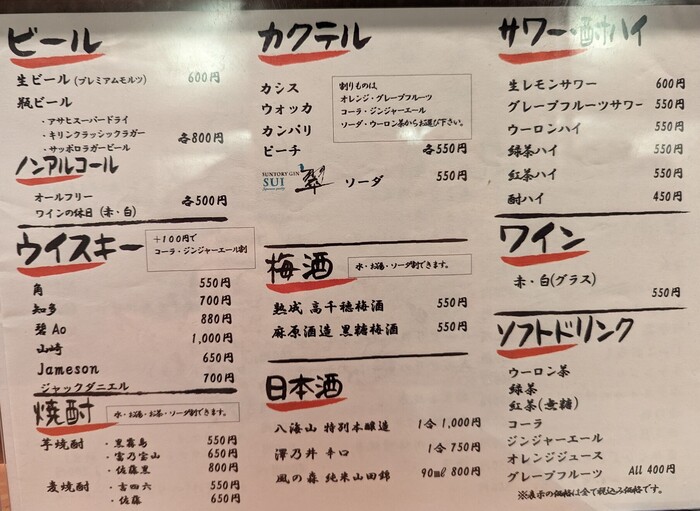 ビール
生ビール (プレミアムモルツ) 600円
瓶ビール
・アサヒスーパードライ
・キリンクラッシックラガー
・サッポロラガービール
各800円
ノンアルコール
オールフリー
ワインの休日 (赤・白)
各500円
ウイスキー
+100円で
コーラ・ジンジャーエール割
角 550円
知多 700円
碧Ao 880円
山崎 1,000円
Jameson 650円
ジャックダニエル 700円
焼酎
水・お湯・お茶・ソーダ割できます。
芋焼酎 ・黒霧島 550円
・富乃宝山 650円
・佐藤黒 800円
麦焼酎 ・吉四六 550円
・佐藤 650円
カクテル
カシス
ウォッカ
カンパリ
ピーチ 各550円
割りものは
オレンジ・グレープフルーツ
コーラ・ジンジャーエール
ソーダ・ウーロン茶からお選び下さい。
SUNTORY GIN
SUI
翠 ソーダ 550円
梅酒
水・お湯・ソーダ割できます。
熟成 高千穂梅酒 550円
麻原酒造 黒糖梅酒 550円
日本酒
八海山 特別本醸造 1合 1,000円
澤乃井 辛口 1合 750円
風の森 純米山田錦 90ml 800円
サワー・酎ハイ
生レモンサワー 600円
グレープフルーツサワー 550円
ウーロンハイ 550円
緑茶ハイ 550円
紅茶ハイ 550円
酎ハイ 450円
ワイン
赤・白(グラス)
550円
ソフトドリンク
ウーロン茶
緑茶
紅茶(無糖)
コーラ
ジンジャーエール
オレンジジュース
グレープフルーツ All 400円
※表示の価格は全て税込み価格です。